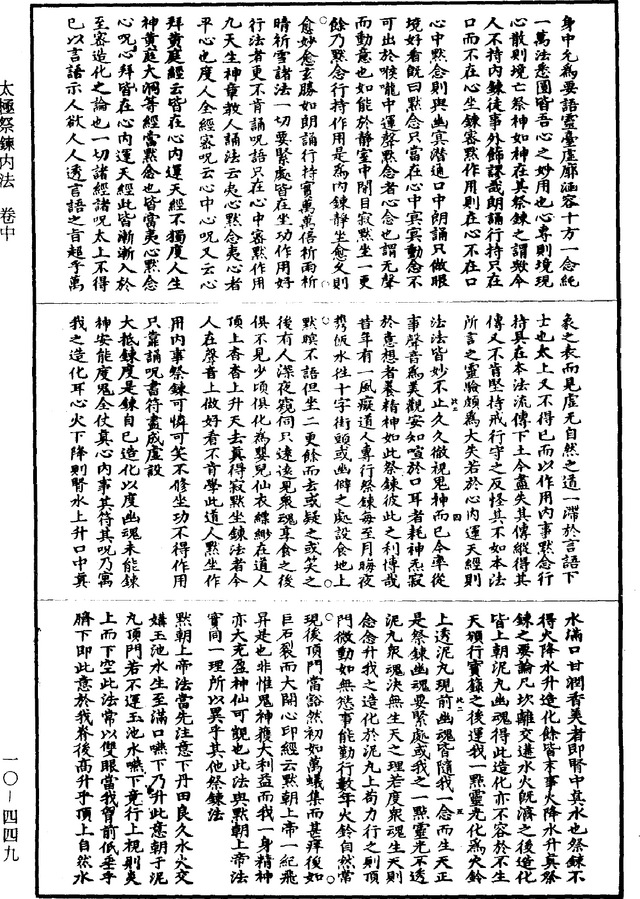 身中先為要語靈臺虛廓涵容十方一念純
一萬法悉圓皆吾心之妙用也心專則境現
心散則境亡祭神如神在其祭鍊之謂歟今
人不持內鍊徒事外飾謬哉朗誦行持只在
口而不在心坐鍊審默作用則在心不在口
心中默念則與幽冥潛通口中朗誦只做眼
境好看既曰默念只當在心中冥冥動念不
可出於喉嚨中運聲默念者心念也謂無聲
而動意也如能於靜室中閉目寂默坐一更
餘乃默念行持作用是為內鍊靜坐愈久則
愈妙愈玄勝如朗誦行持實萬萬倍祈雨祈
晴祈雪諸法一切要緊處皆在坐功作用好
行法者更不肯誦呪語只在心中審默作用
九天生神章教人誦法云夷心默念夷心者
平心也度人全經密呪云心中心呪又云心
拜黃庭經云皆在心內運天經不獨度人生
神黃庭大洞等經當默念也皆當夷心默念
心呪心拜皆在心內運天經此皆漸漸入於
至密造化之論也一切諸經諸呪太上不得
已以言語示人欲人人透言語之旨超乎萬
太極祭鍊內法 卷中
象之表而見虛无自然之道一滯於言語下
士也太上又不得已而以作用內事默念行
持具在本法流傳下土今盡失其傳縱得其
傳又不肯堅持戒行守之反怪其不如本法
所言之靈驗頗為大失若於心內運天經則
法法皆妙不止久久徹視鬼神而已今率從
事聲音為美觀安知喧於口耳者耗神炁寂
於意想者養精神如此祭鍊彼此之利博哉
昔年有一風癡道人專行祭鍊每至月晦夜
携飯水往十字街頭或幽僻之處設食地上
默暝不語但坐二更餘而去或疑之或笑之
後有人深夜窺伺只遠遠見衆魂享食之後
俱不見少頃俱化為嬰兒仙衣縹緲在道人
頂上杳杳上升天去真得寂默坐鍊法者今
人在聲音上做好看不肯學此道人默坐作
用內事祭鍊可憐可笑不修坐功不得作用
只靠誦呪書符畫威虛設
大抵鍊度是鍊自己造化以度幽魂未能鍊
神安能度鬼全仗真心內事其符其呪乃寓
我之造化耳心火下降則腎水上升口中真
水滿口甘潤香美者即腎中真水也祭鍊不
得火降水升造化餘皆末事火降水升真祭
鍊之要論凡坎離交遘水火既濟之後造化
皆上朝泥丸幽魂得此造化亦不容於不生
天頒行寶籙之後運我一點靈光化為火鈴
上透泥丸現前幽魂皆隨我一念而生天正
是祭鍊幽魂要緊處或我之一點靈光不透
泥丸衆魂決無生天之理若度衆魂生天則
念念升我之造化於泥丸上苟力行之則頂
門微動如無愁事能勤行數年火鈴自然常
現後頂門當豁然初如萬蟻集而甚痒後如
巨石裂而大開心印經云默朝上帝一紀飛
昇是也非惟鬼神獲大利益而我一身精神
亦大充盈神仙可覬也此法與默朝上帝法
實同一理所以異乎其他祭鍊法
默朝上帝法當先注意下丹田良久水火交
媾玉池水生至滿口嚥下乃升此意朝于泥
丸頂門若不運玉池水嚥下竟行上視則炎
上而下空此法常以雙眼當我胷前低垂乎
臍下即此意於我脊後高升乎頂上自然水
一〇—四四九